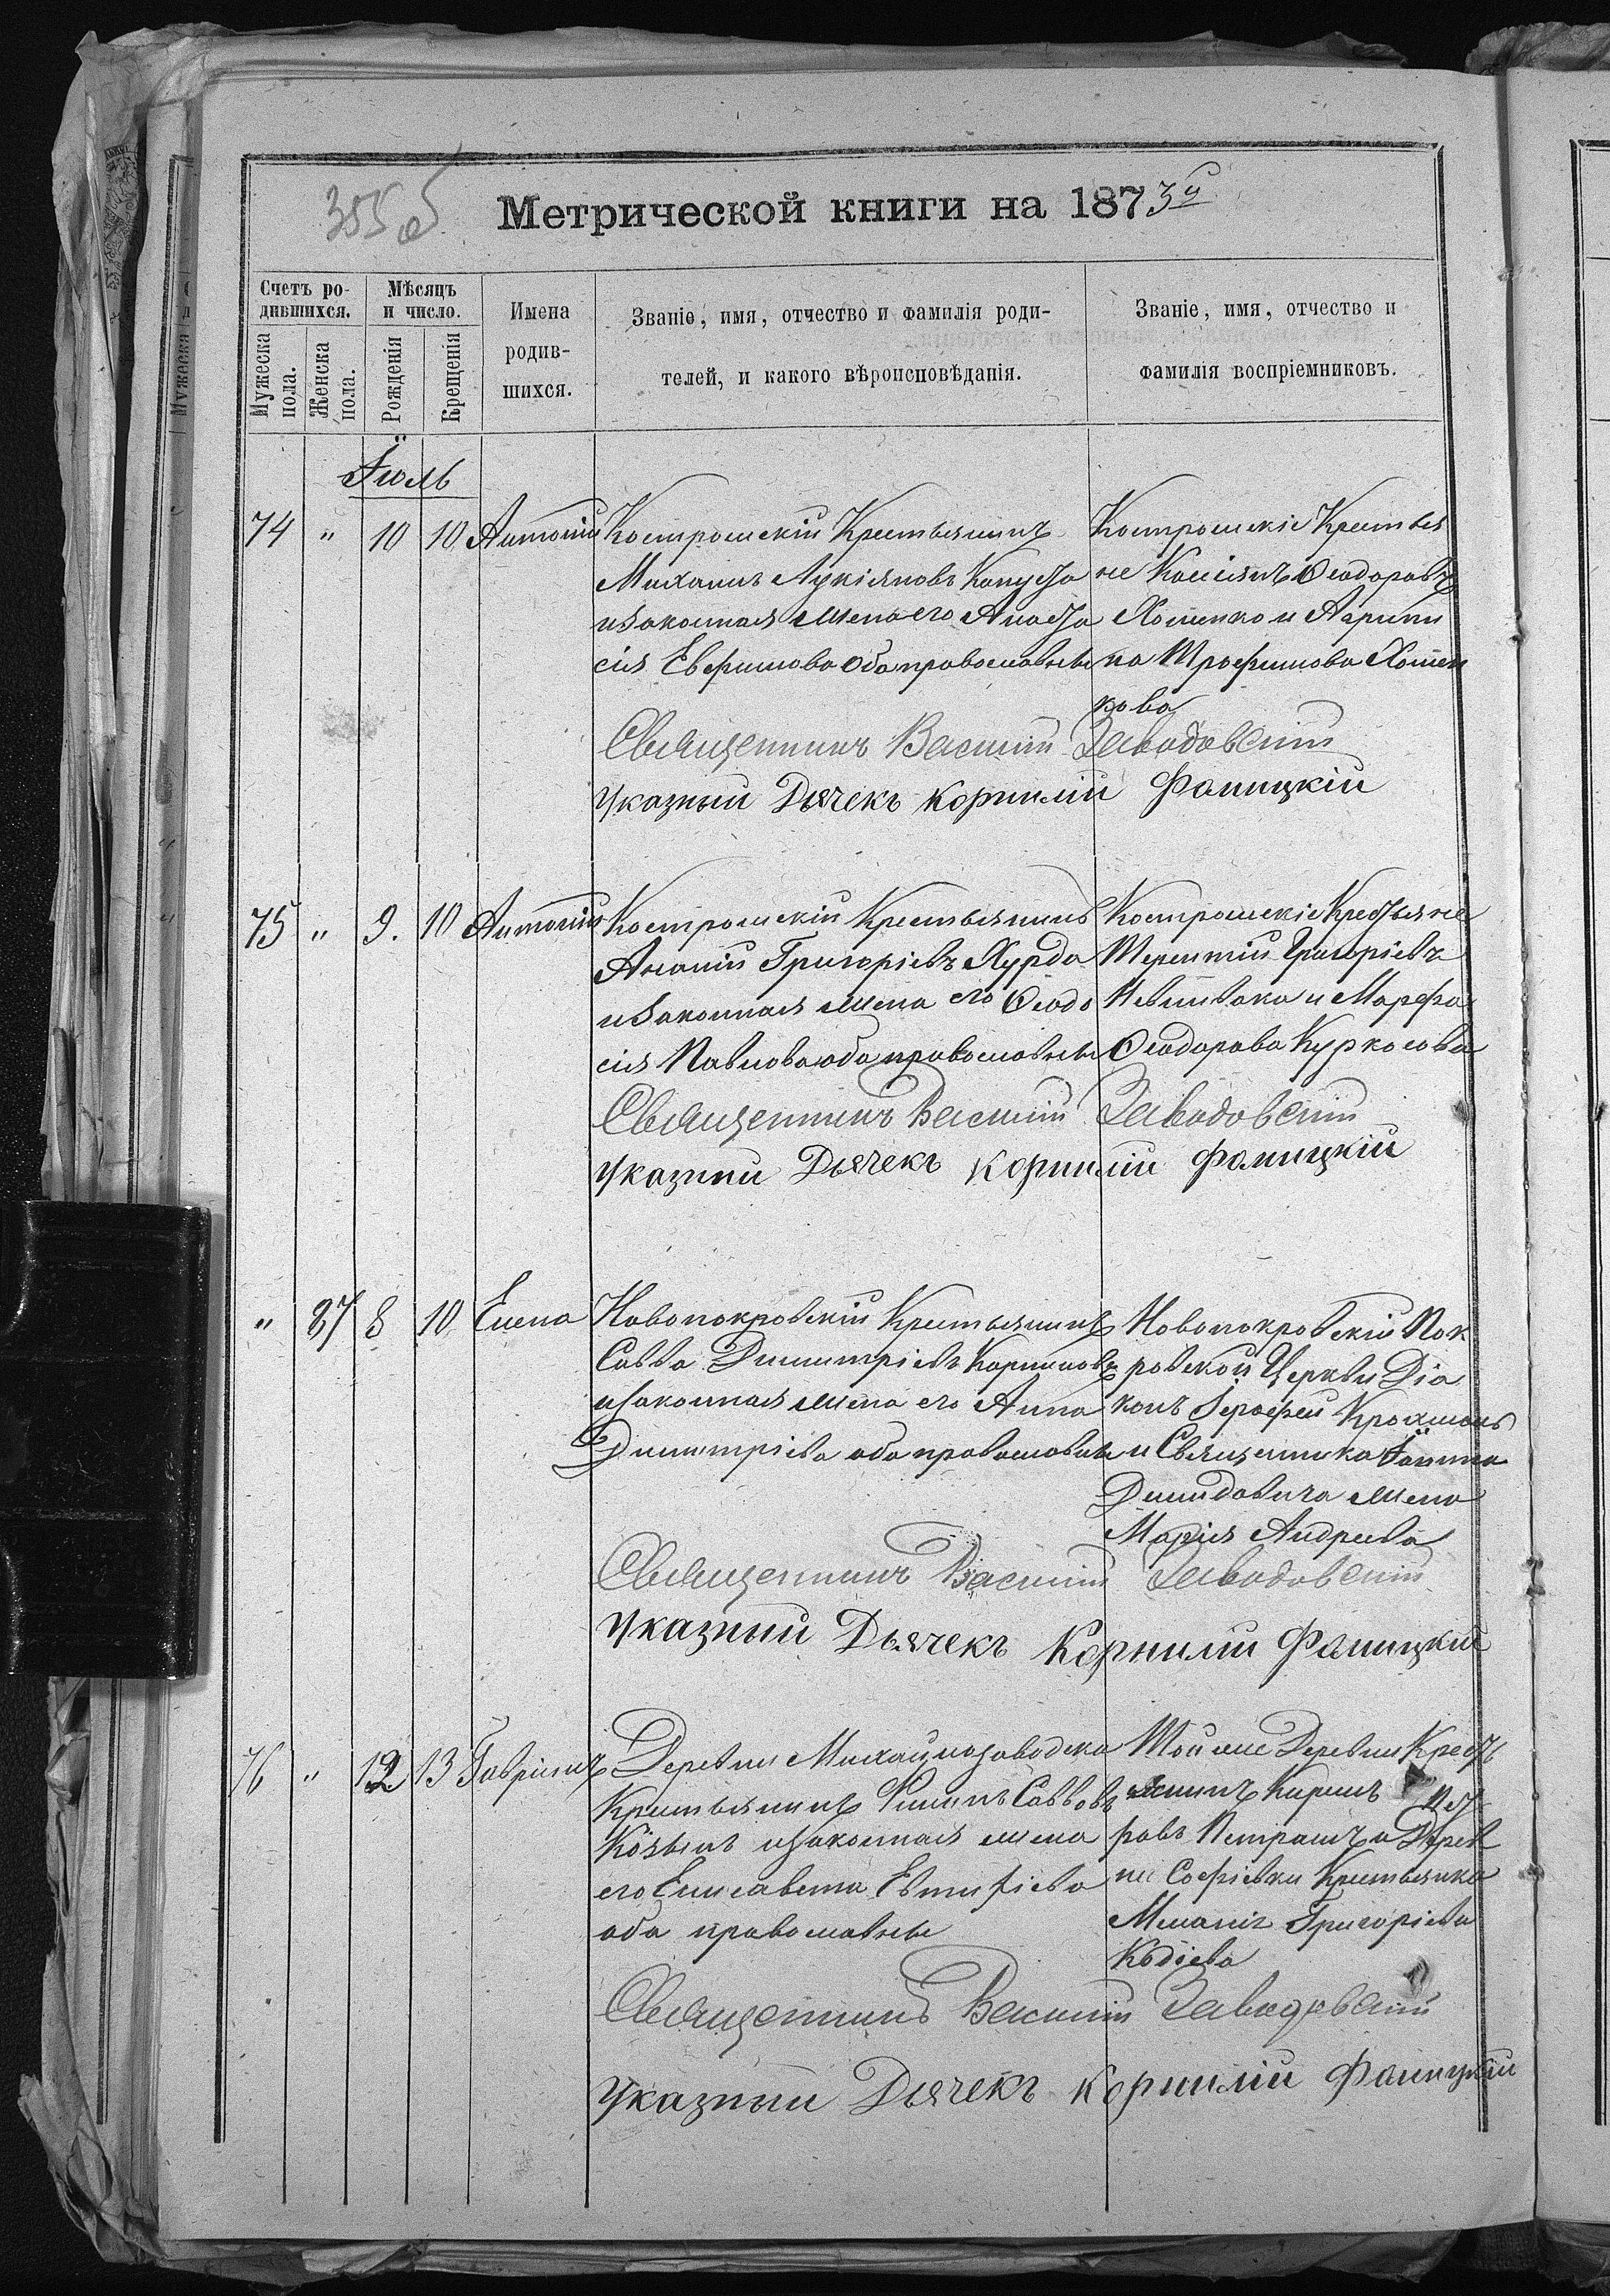 355 об
Метрической книги на 1873й
Счетъ ро-
дившихся.
Мѣсяцъ
и число.
Мужеска
пола.
Женска
пола.
Рожденія
Крещенія
Имена
родив-
шихся.
Званіе, имя, отчество и фамилія роди-
телей, и какого вѣроисповѣданія.
Званіе, имя, отчество и
фамилія воспріемниковъ.
Іюль
74 " 10 10 Антоній
Костромскій Крестьянинъ
Михаилъ Лукіяновъ Капуста
и законная жена его Анаста
сія Евфимова оба православные
Костромскіе Крестья
не Кассіянъ Ѳеодоровъ
Хоменко и Агрипи
на Трофимова Хомен
кова
Священникъ Василій Заводовскій
Указный Дьячекъ Корнилій Фаницкій
75 " 9. 10 Антоній
Костромскій Крестьянинъ
Ананій Григоріевъ Хурда
и законная жена его Ѳеодо
сія Павлова оба православные
Костромскіе Крестьяне
Терентій Григоріевъ
и Марфа
Ѳеодорова Куркосова
Священникъ Василій Заводовскій
Указный Дьячекъ Корнилій Фаницкій
" 87 8 10 Елена
Новопокровскій Крестьянинъ
Савва Димитріевъ Карпиновъ
и законная жена его Анна
Димитріева оба православные
Новопокровскій Пок
ровской Церкви Діа
конъ Іерофей
и Священника Іоанна
Демидовича жена
Марія Андреева
Священникъ Василій Заводовскій
Указный Дьячекъ Корнилій Фаницкій
76 " 12 13 Гавріилъ
Деревни Михайлозаводска
Крестьянинъ Филипъ Саввовъ
Козылъ и законная жена
его Елисавета Евтихіева
оба православные
Той же Деревни Кресть
янинъ Кирилъ Пет
ровъ Петрашъ и Дерев
ни Софіевки Крестьянка
Меланія Григоріева
Кодіева
Священникъ Василій Заводовскій
Указный Дьячекъ Корнилій Фаницкій